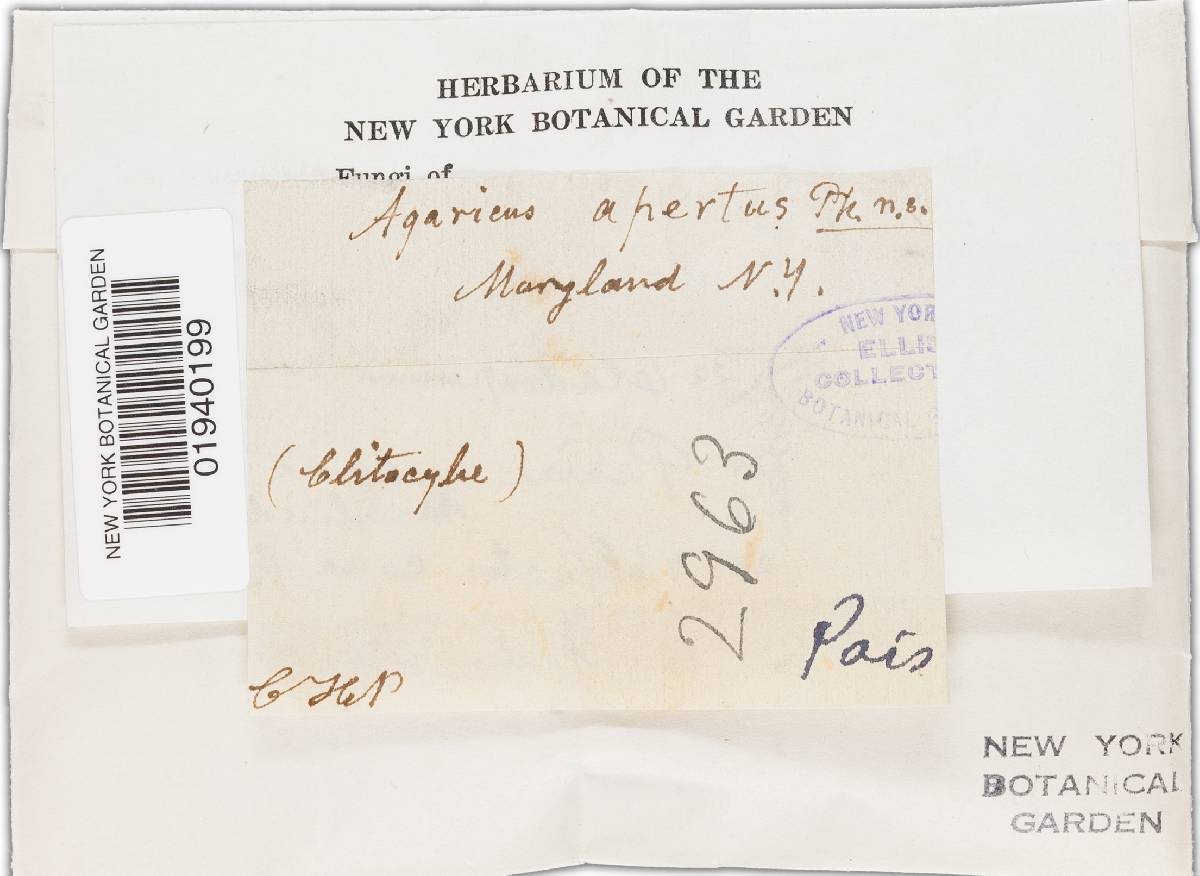 HERBARIUM OF THE
NEW YORK BOTANICAL GARDEN
Fungi of
Agaricus apertus Pk n.s.
Maryland N.Y.
NEW YOR
ELLIS
COLLECT
BOTANICAL G
(Clitocybe)
2963
Pais
C H P
NEW YORK BOTANICAL GARDEN
01940199
NEW YORK
BOTANICAL
GARDEN